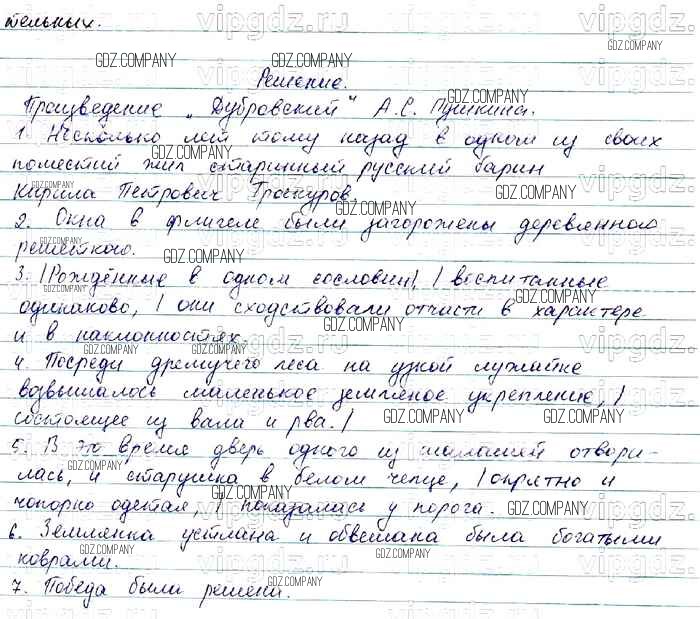 тельных.
Решение.
Произведение „Дубровский" А.С. Пушкина.
1. Несколько лет тому назад в одном из своих
поместий жил старинный русский барин
Кирила Петрович Троекуров.
2. Окна в флигеле были загорожены деревянною
решёткою.
3. |Рождённые в одном сословии,| |воспитанные
одинаково,| они сходствовали отчасти в характере
и в наклонностях.
4. Посреди дремучего леса на узкой лужайке
возвышалось маленькое земляное укрепление,|
состоящее из вала и рва.|
5. В это время дверь одного из шалашей отвори-
лась, и старушка в белом чепце, |опрятно и
чопорно одетая,| показалась у порога.
6. Землянка устлана и обвешана была богатыми
коврами.
7. Победа были решена.